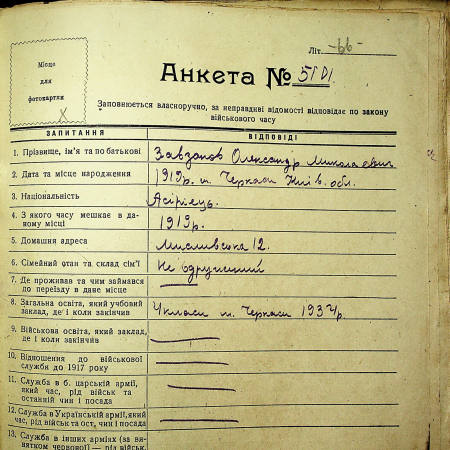 Літ. -66-
Місце
для
фотокартки
Анкета №
Заповнюється власноручно, за неправдиві відомості відповідає по закону
військового часу
ЗАПИТАННЯ ВІДПОВІДІ
1. Прізвище, ім'я та по батькові Олександр Миколаєвич
2. Дата та місце народження 1919р. м. Черкаси Київ. обл.
3. Національність Асірієць.
4. З якого часу мешкає в да-
ному місці 1919р.
5. Домашня адреса Мисливська 12.
6. Сімейний стан та склад сім'ї Не одружений
7. Де проживав та чим займався
до переїзду в дане місце —
8. Загальна освіта, який учбовий
заклад, де і коли закінчив 4 класи м. Черкаси
9. Військова освіта, який заклад,
де і коли закінчив —
10. Відношення до військової
служби до 1917 року —
11. Служба в б. царській армії,
який час, рід військ та
останній чин і посада —
12. Служба в Українській армії, який
час, рід військ та ост. чин і посада —
13. Служба в інших арміях (за ви-
нятком червоної) — рід військ,